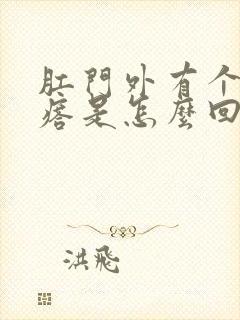 肛門外有个
痞是怎麼回
洪飛